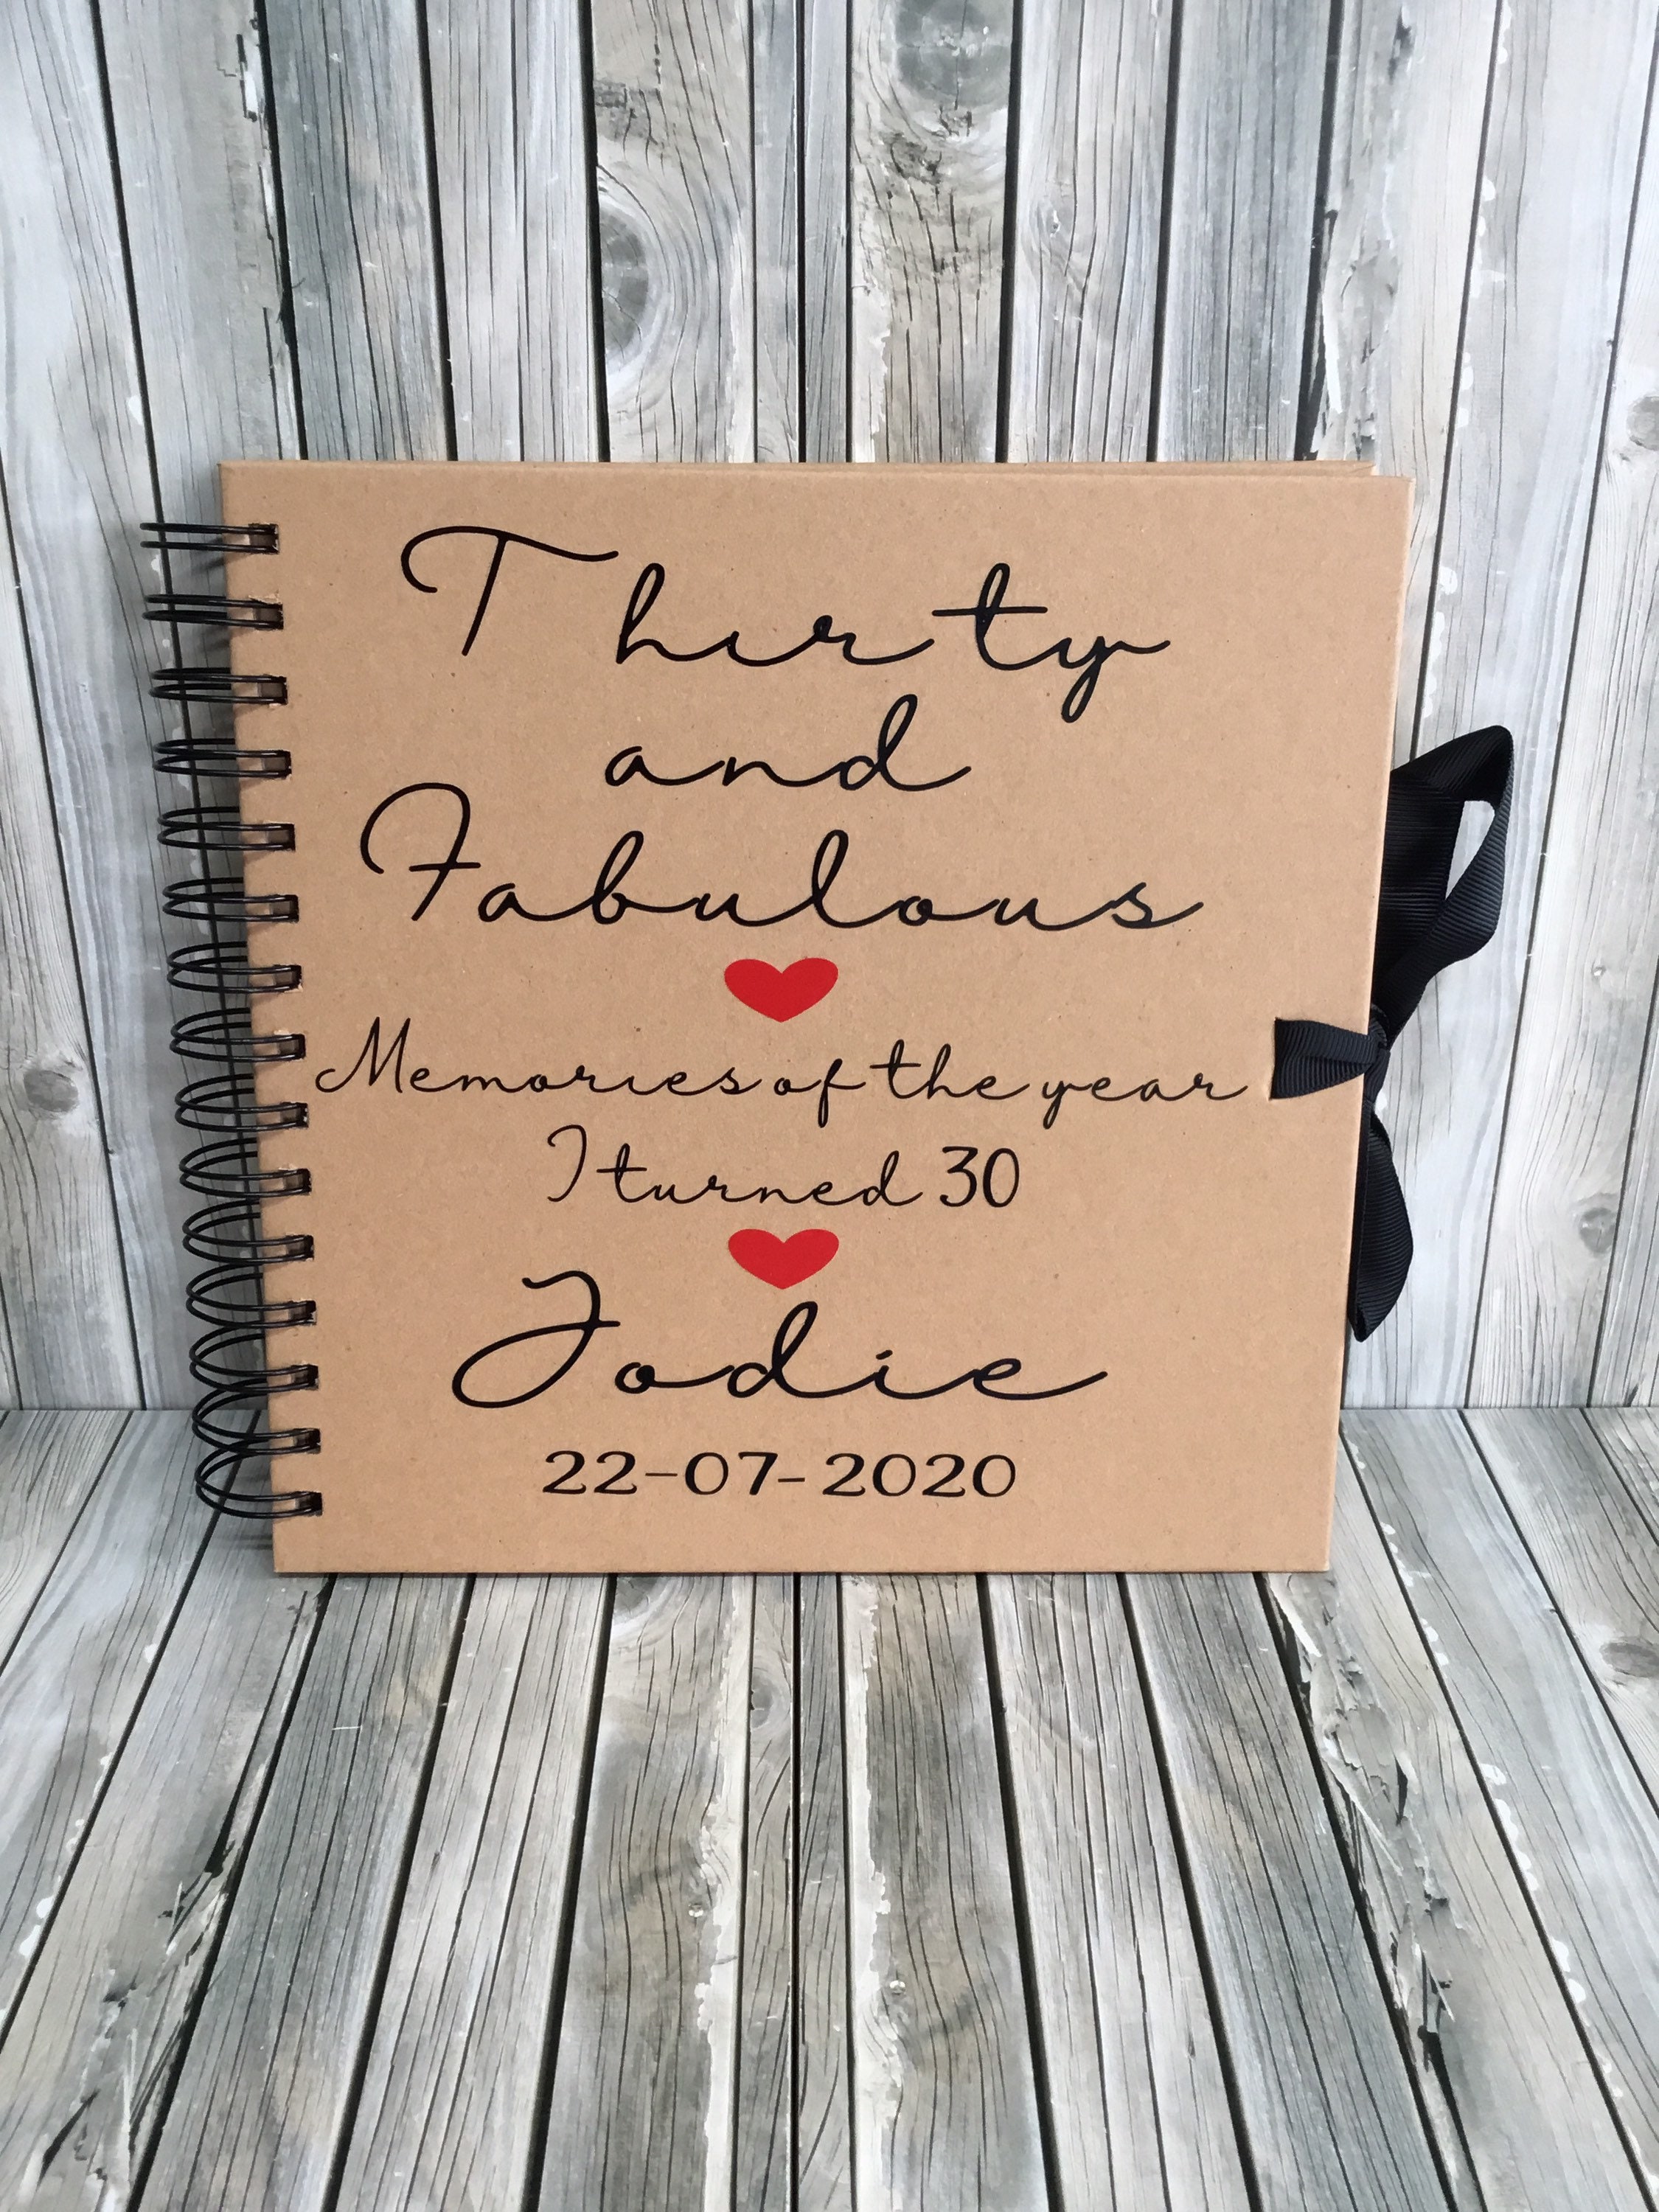 Thirty
and
Fabulous
Memories of the year
I turned 30
Jodie
22-07-2020